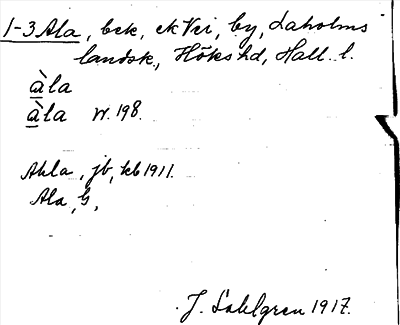 1-3 Ala, bek, ek Vri, by, Laholms
landsk, Höks hd, Hall. l.
àla
àla W. 198.
Ahla, jb, kb 1911.
Ala, G,
J. Sahlgren 1917.